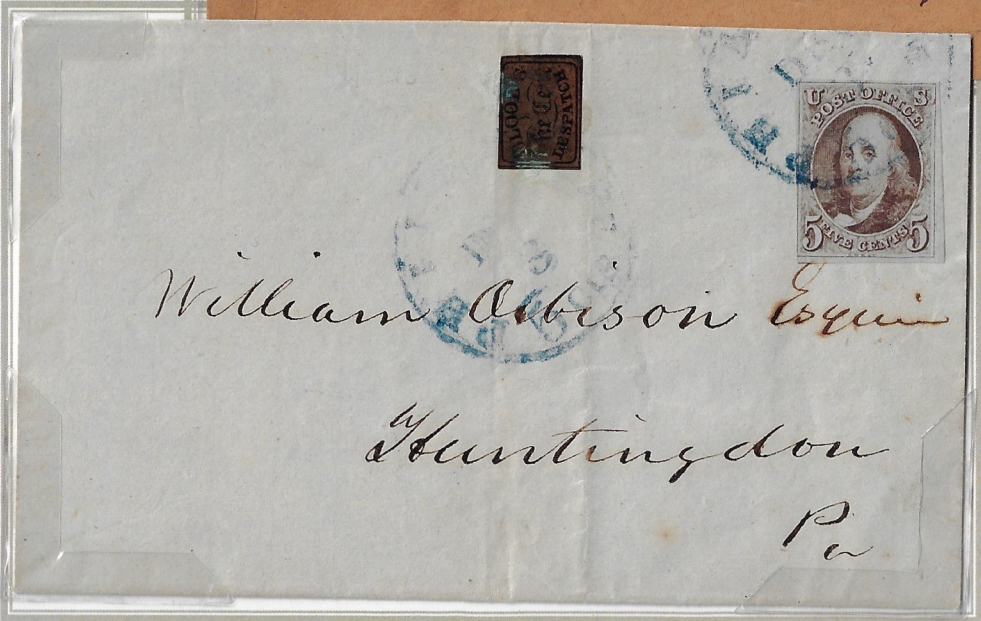 BLOOD'S
One Cent
DESPATCH
U S
POST OFFICE
5 FIVE CENTS 5
William Orbison Esquire
Huntingdon
Pa